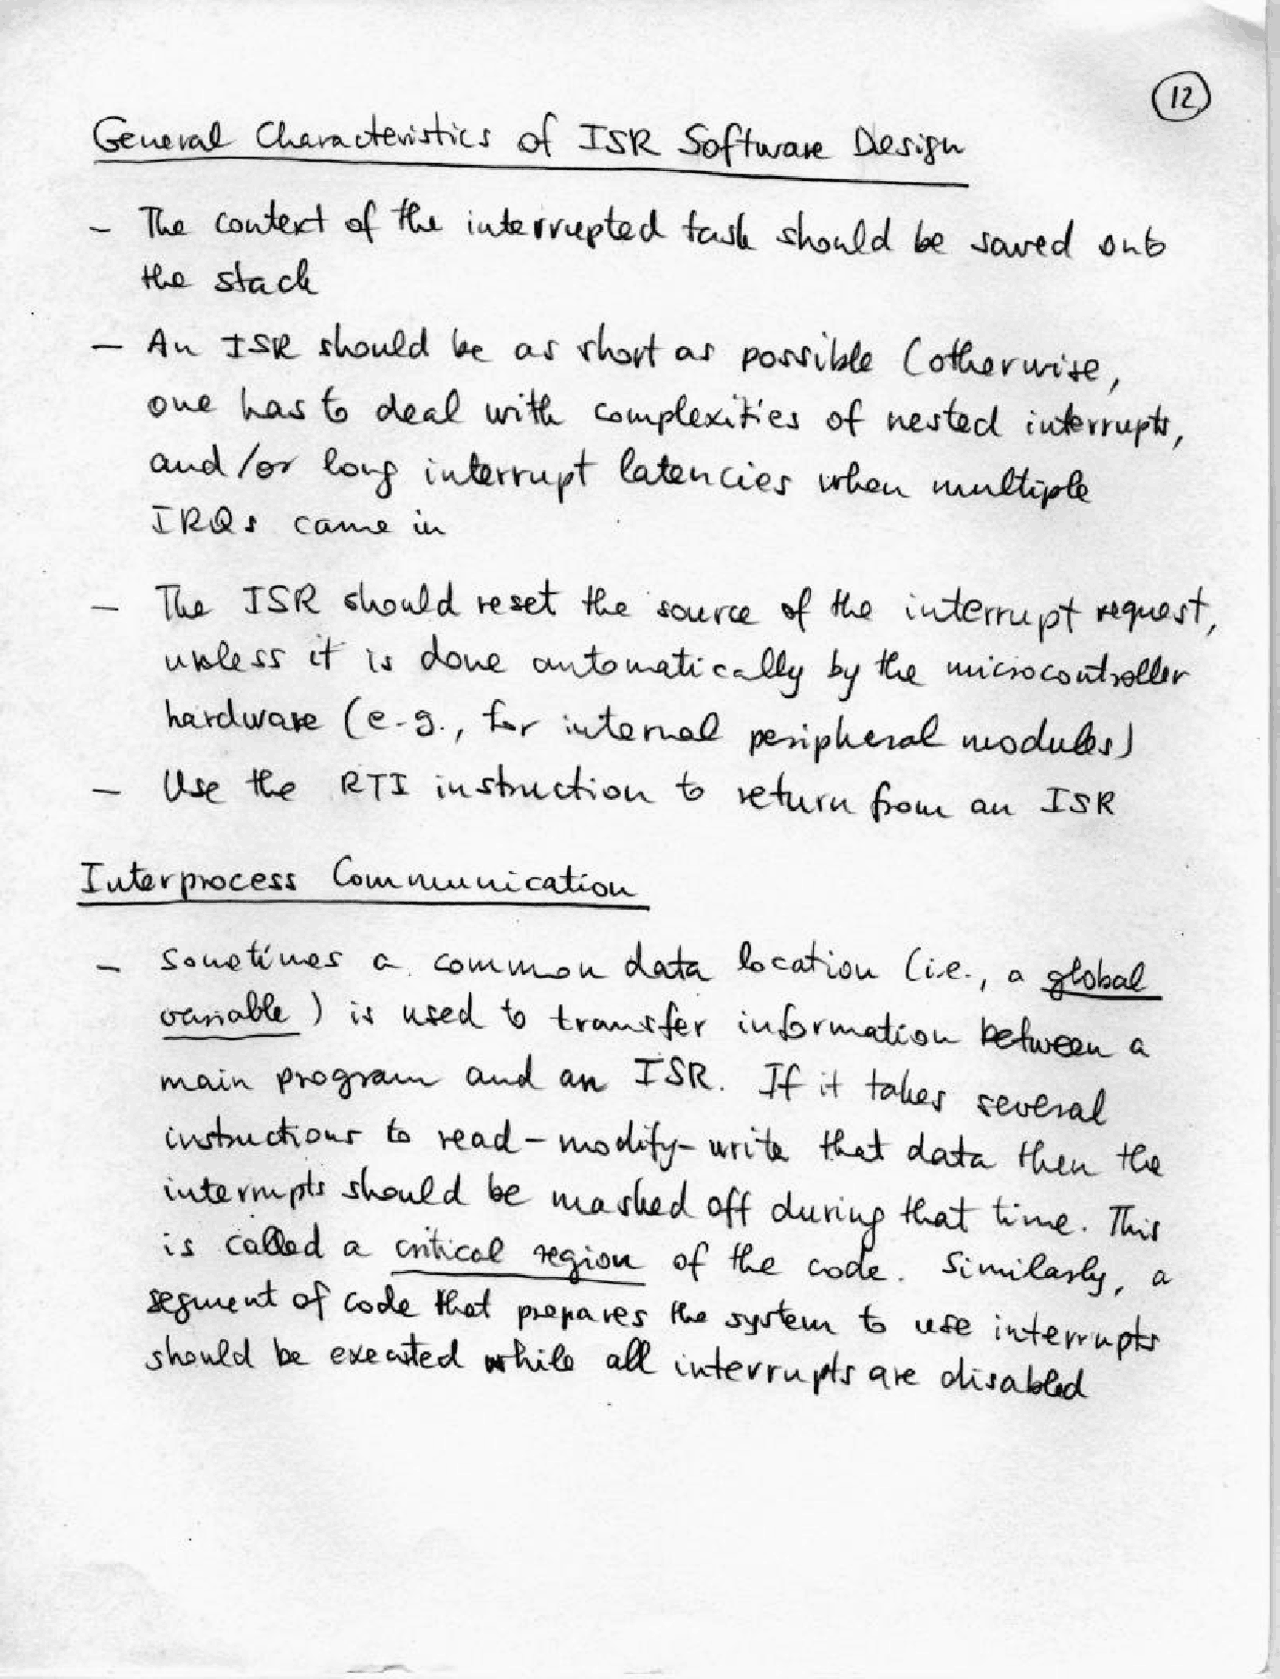 12
General Characteristics of ISR Software Design
- The context of the interrupted task should be saved onto
the stack
- An ISR should be as short as possible (otherwise,
one has to deal with complexities of nested interrupts,
and/or long interrupt latencies when multiple
IRQs came in
- The ISR should reset the source of the interrupt request,
unless it is done automatically by the microcontroller
hardware (e.g., for internal peripheral modules)
- Use the RTI instruction to return from an ISR
Interprocess Communication
- Sometimes a common data location (i.e., a global
variable) is used to transfer information between a
main program and an ISR. If it takes several
instructions to read-modify-write that data then the
interrupts should be masked off during that time. This
is called a critical region of the code. Similarly, a
segment of code that prepares the system to use interrupts
should be executed while all interrupts are disabled